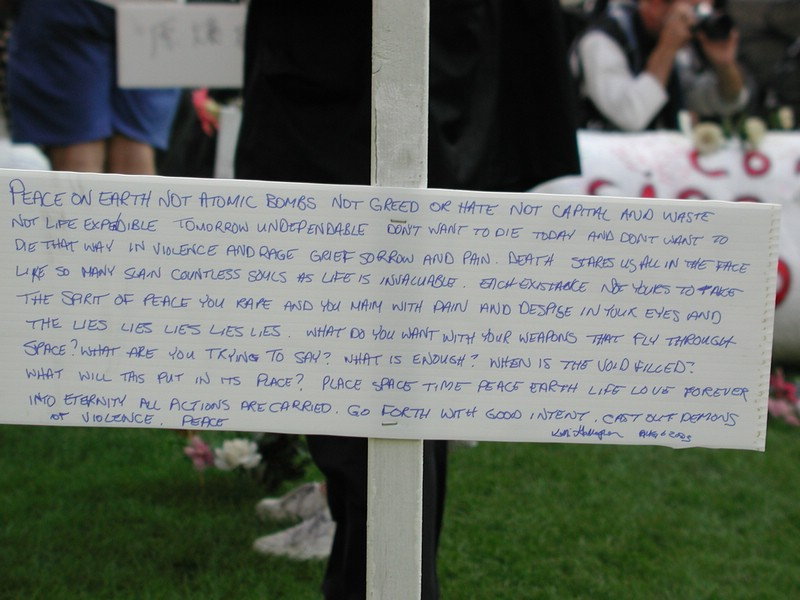 PEACE ON EARTH NOT ATOMIC BOMBS NOT GREED OR HATE NOT CAPITAL AND WASTE
NOT LIFE EXPEDIBLE TOMORROW UNDEPENDABLE DON'T WANT TO DIE TODAY AND DONT WANT TO
DIE THAT WAY IN VIOLENCE AND RAGE GRIEF SORROW AND PAIN. DEATH STARES US ALL IN THE FACE
LIKE SO MANY SLAIN COUNTLESS SOULS AS LIFE IS INVALUABLE. EACH EXISTABLE NOT YOURS TO TAKE
THE SPIRIT OF PEACE YOU RAPE AND YOU MAIM WITH PAIN AND DESPISE IN YOUR EYES AND
THE LIES LIES LIES LIES LIES. WHAT DO YOU WANT WITH YOUR WEAPONS THAT FLY THROUGH
SPACE? WHAT ARE YOU TRYING TO SAY? WHAT IS ENOUGH? WHEN IS THE VOID FILLED?
WHAT WILL THIS PUT IN ITS PLACE? PLACE SPACE TIME PEACE EARTH LIFE LOVE FOREVER
INTO ETERNITY ALL ACTIONS ARE CARRIED. GO FORTH WITH GOOD INTENT. CAST OUT DEMONS
OF VIOLENCE. PEACE
AUG 6 2003